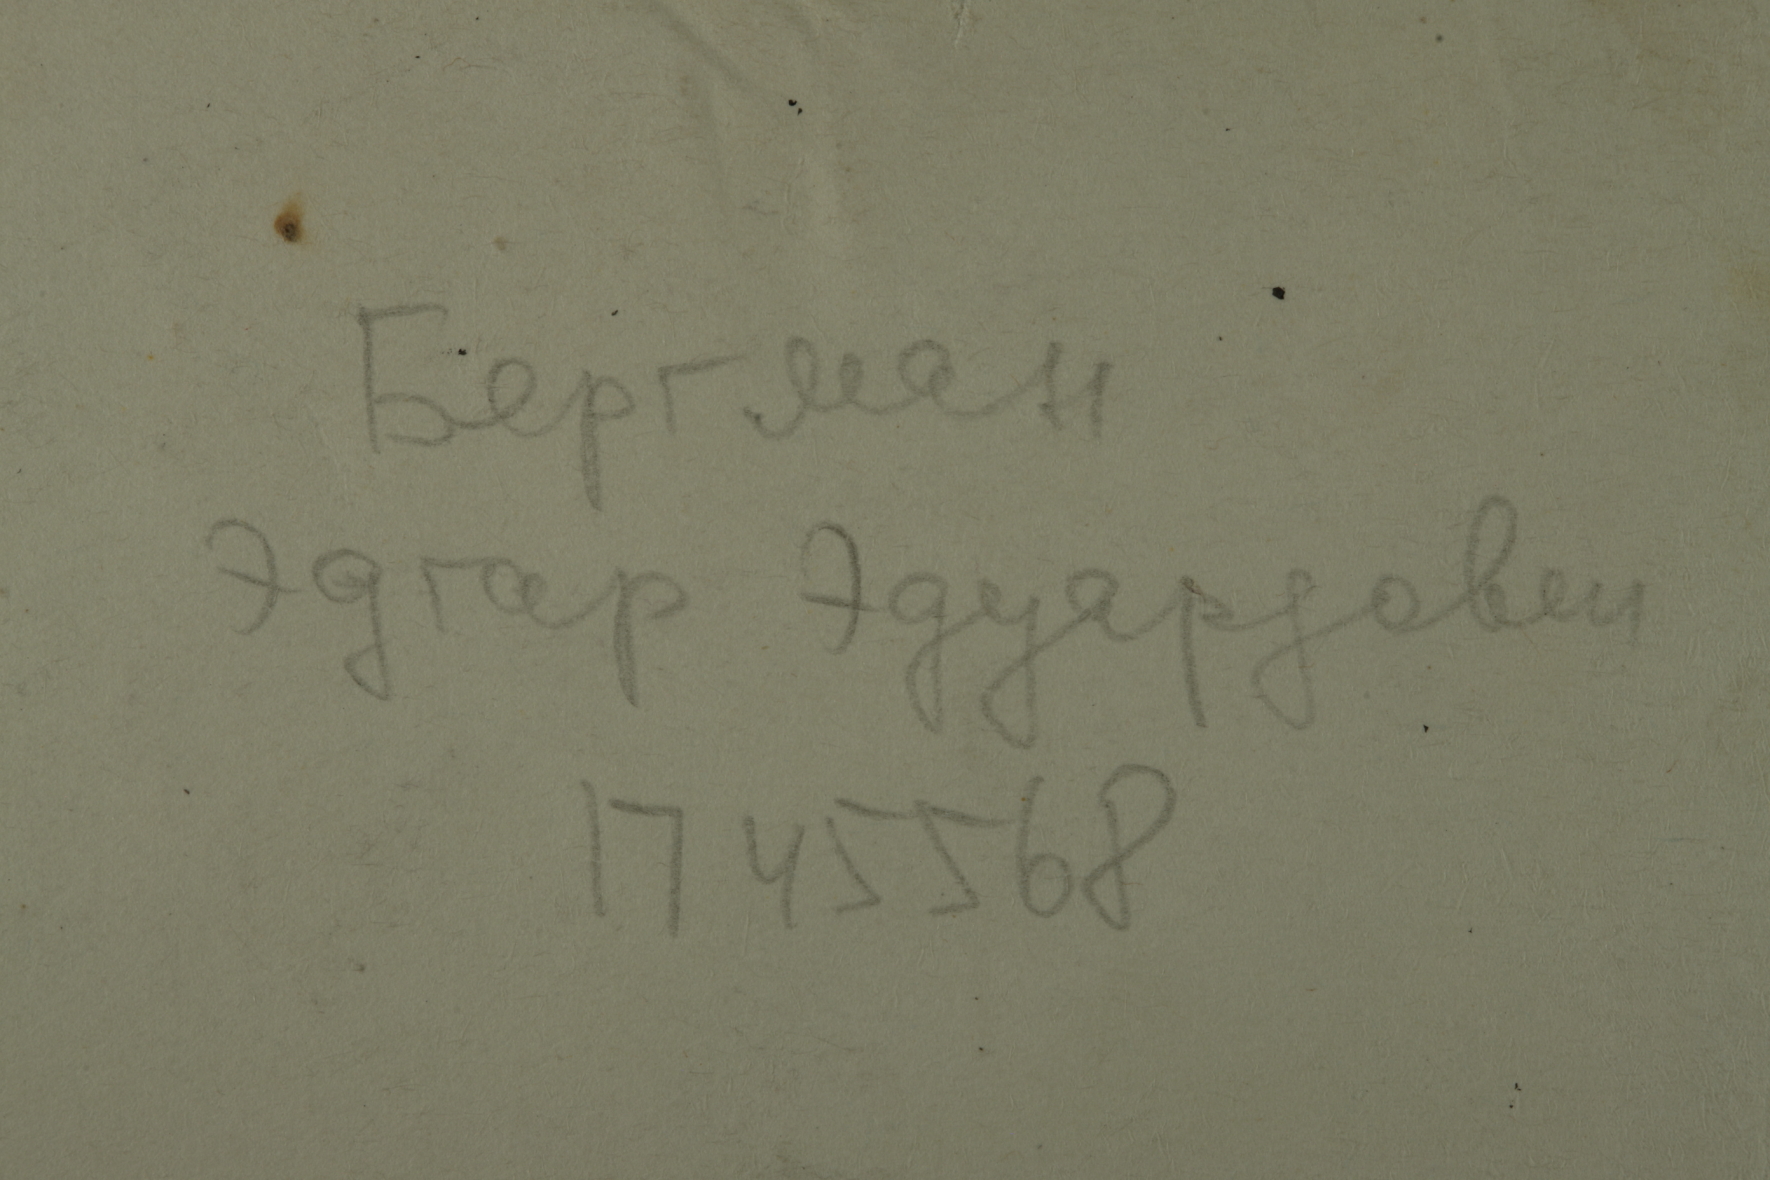 Бергман
Эдгар Эдуардович
1745568